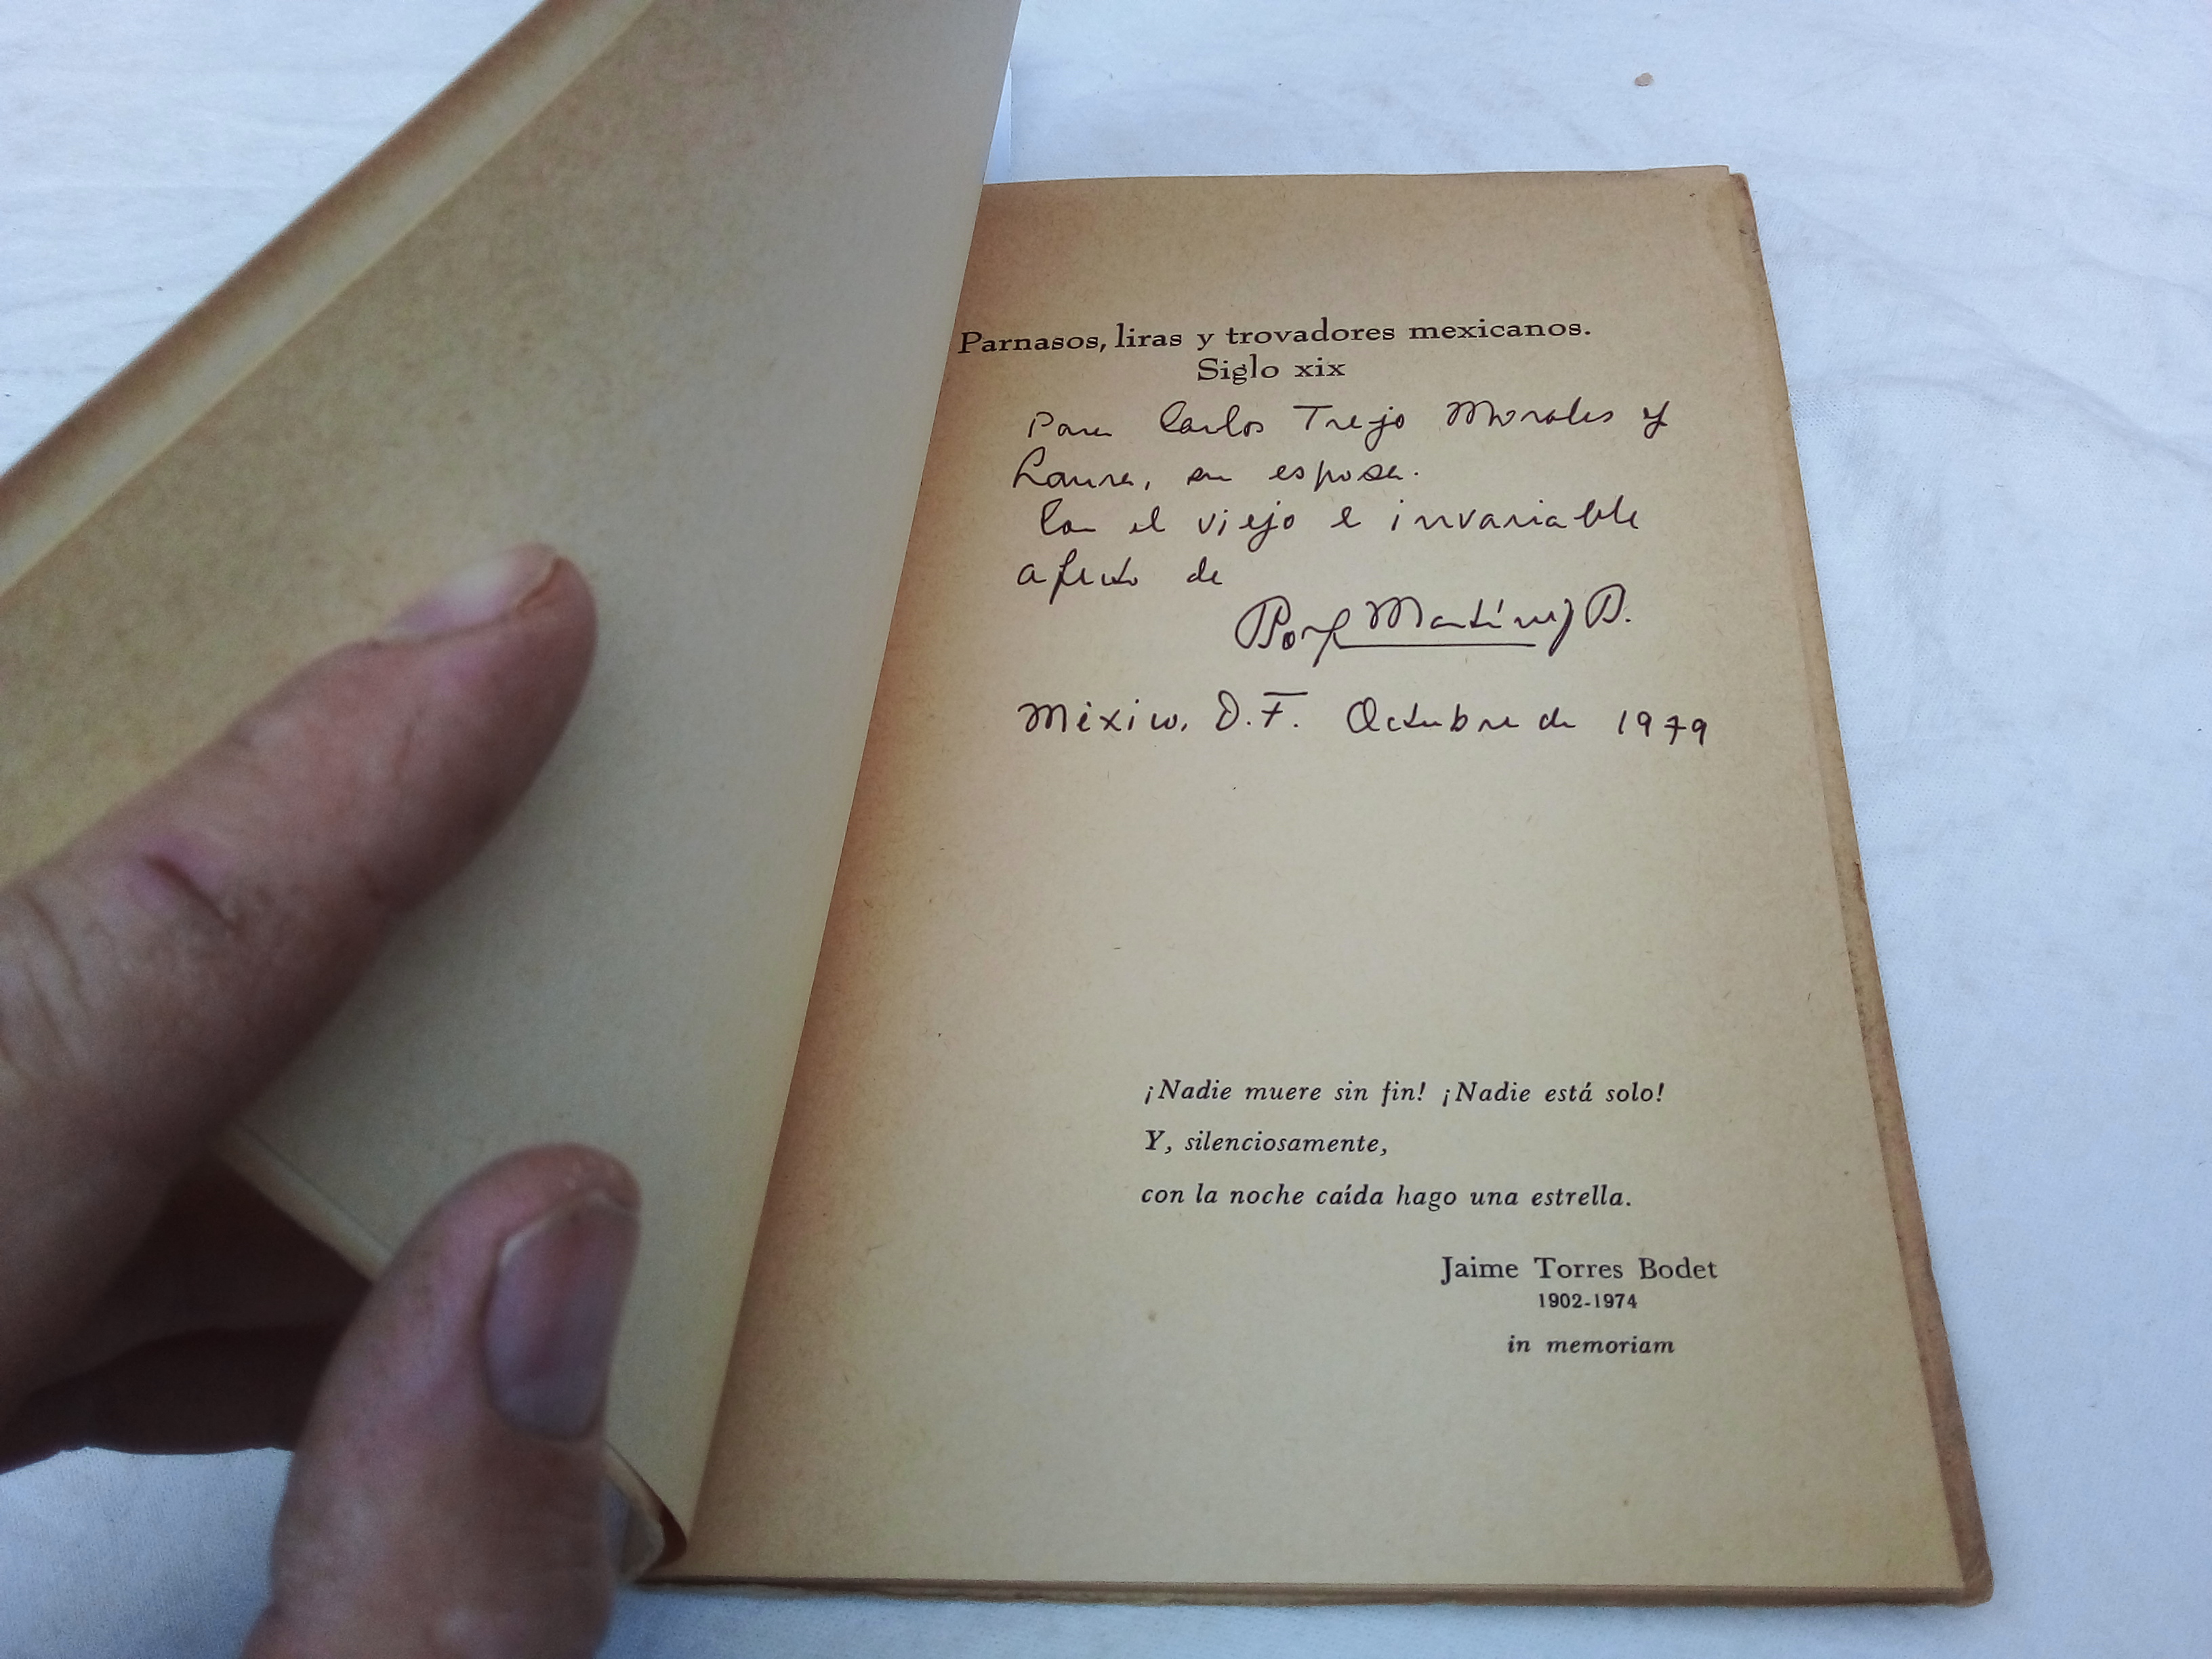 Parnasos, liras y trovadores mexicanos.
Siglo xix
Para Carlos Trejo Morales y
Laura, su esposa.
Con el viejo e invariable
afecto de
Porf Martínez P.
México, D.F. Octubre de 1979
¡Nadie muere sin fin! ¡Nadie está solo!
Y, silenciosamente,
con la noche caída hago una estrella.
Jaime Torres Bodet
1902-1974
in memoriam